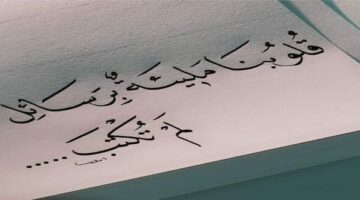 قلوبنا مليئه برسائل
لم تكتب.....